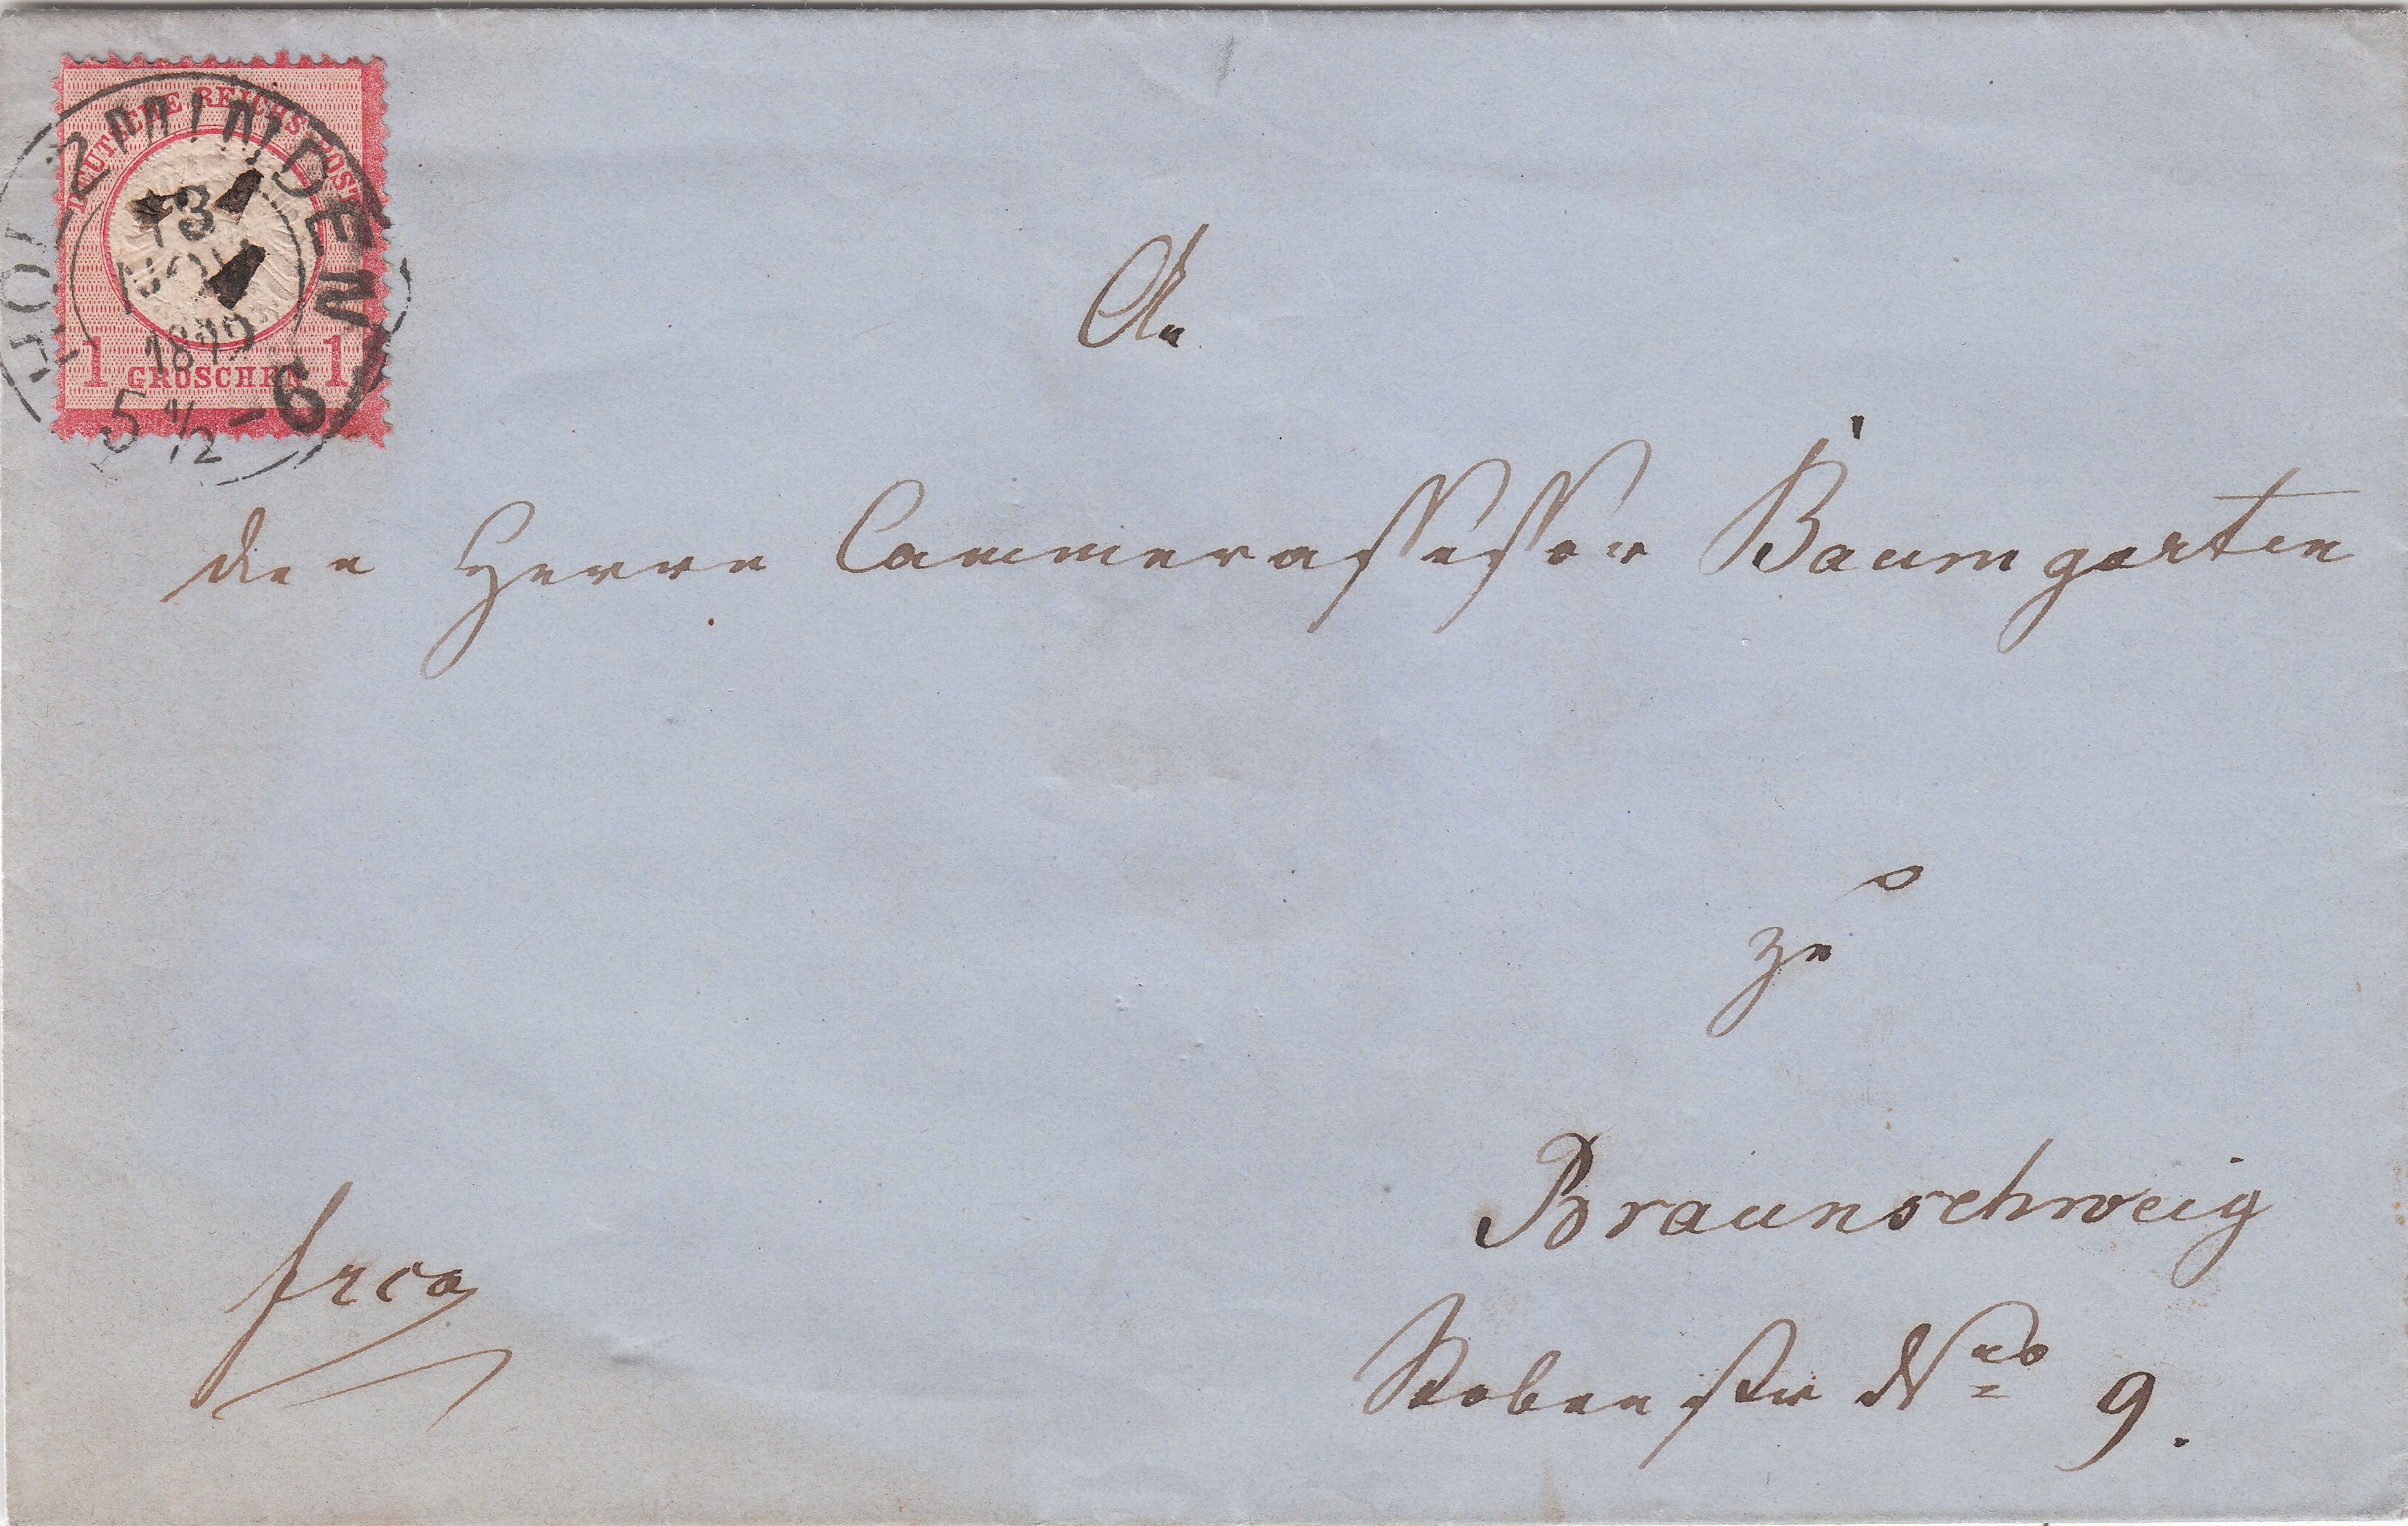 DEUTSCHE REICHS-POST
1 GROSCHEN 1
HOLZMINDEN
13
NOV
1872
5 1/2 - 6
An
den Herrn Cammerassessor Baumgarten
zu
Braunschweig
frco
Nro 9.